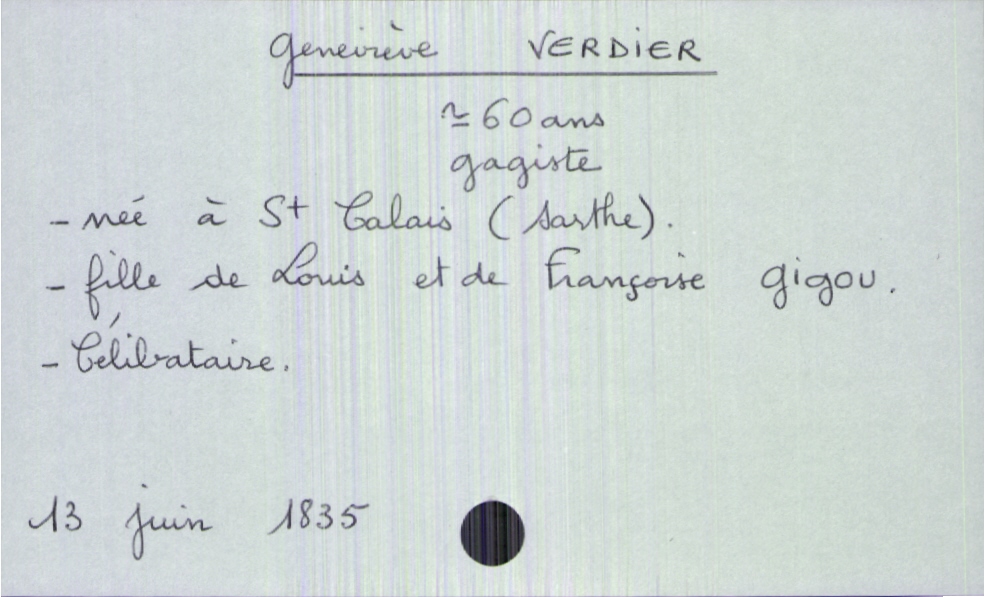 Geneviève VERDIER
≃ 60 ans
gagiste
- née à St Calais (Sarthe).
- fille de Louis et de Françoise Gigou.
- Célibataire.
13 juin 1835